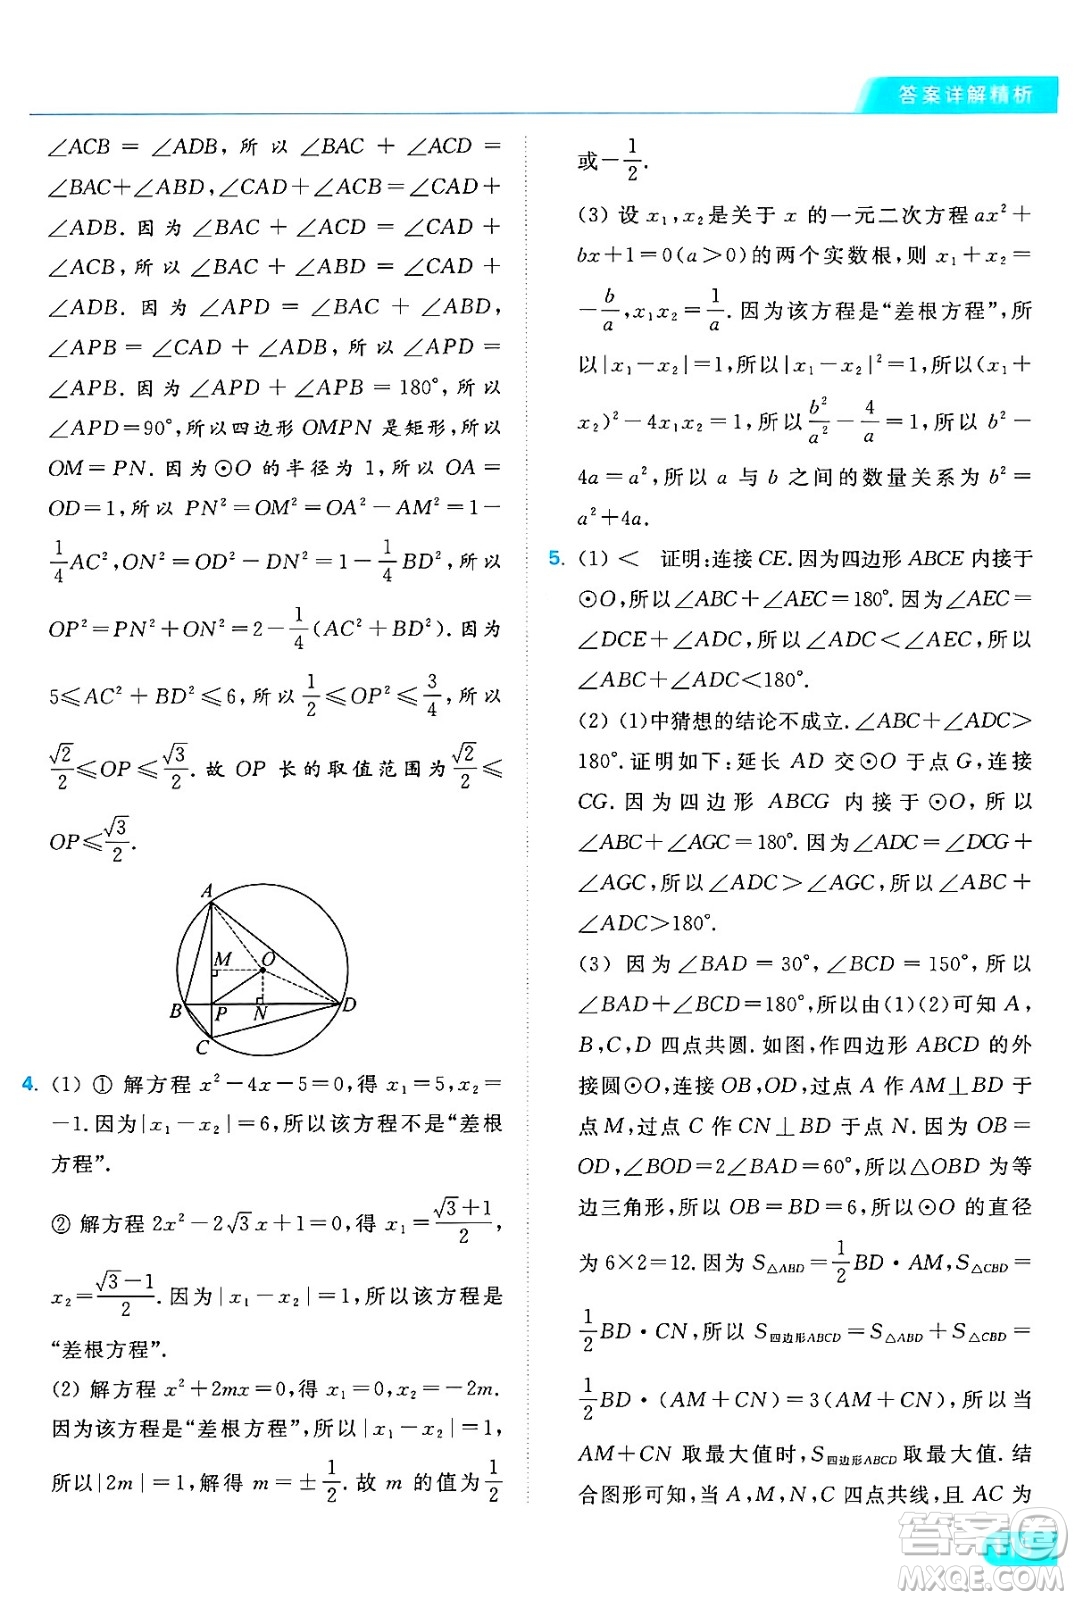 答案详解精析
∠ACB = ∠ADB, 所以 ∠BAC + ∠ACD =
∠BAC+∠ABD,∠CAD+∠ACB=∠CAD+
∠ADB. 因为 ∠BAC + ∠ACD = ∠CAD +
∠ACB, 所以 ∠BAC + ∠ABD = ∠CAD +
∠ADB. 因为 ∠APD = ∠BAC + ∠ABD,
∠APB = ∠CAD + ∠ADB, 所以 ∠APD =
∠APB. 因为 ∠APD + ∠APB = 180°, 所以
∠APD=90°,所以四边形 OMPN 是矩形,所以
OM=PN. 因为⊙O 的半径为 1,所以 OA=
OD=1,所以 PN²=OM²=OA²-AM²=1-
1/4 AC²,ON²=OD²-DN²=1-1/4 BD²,所以
OP²=PN²+ON²=2-1/4(AC²+BD²). 因为
5≤AC²+BD²≤6,所以 1/2≤OP²≤3/4,所以
√2/2≤OP≤√3/2. 故 OP 长的取值范围为 √2/2≤
OP≤√3/2.
A
M
O
B
P
N
D
C
4. (1) ① 解方程 x²-4x-5=0,得 x₁=5,x₂=
-1.因为|x₁-x₂|=6,所以该方程不是“差根
方程”.
② 解方程 2x²-2√3x+1=0,得 x₁=(√3+1)/2,
x₂=(√3-1)/2.因为|x₁-x₂|=1,所以该方程是
“差根方程”.
(2) 解方程 x²+2mx=0,得 x₁=0,x₂=-2m.
因为该方程是“差根方程”,所以|x₁-x₂|=1,
所以|2m|=1,解得 m=±1/2. 故 m 的值为 1/2
或-1/2.
(3) 设 x₁,x₂是关于 x 的一元二次方程 ax²+
bx+1=0(a>0)的两个实数根,则 x₁+x₂=
-b/a,x₁x₂=1/a.因为该方程是“差根方程”,所
以|x₁-x₂|=1,所以|x₁-x₂|²=1,所以(x₁+
x₂)²-4x₁x₂=1,所以 b²/a²-4/a=1,所以 b²-
4a=a²,所以 a 与 b 之间的数量关系为 b²=
a²+4a.
5. (1) < 证明:连接 CE.因为四边形 ABCE 内接于
⊙O,所以∠ABC+∠AEC=180°.因为∠AEC=
∠DCE+∠ADC,所以∠ADC<∠AEC,所以
∠ABC+∠ADC<180°.
(2) (1)中猜想的结论不成立.∠ABC+∠ADC>
180°.证明如下:延长 AD 交⊙O 于点 G,连接
CG. 因为四边形 ABCG 内接于⊙O,所以
∠ABC+∠AGC=180°.因为∠ADC=∠DCG+
∠AGC,所以∠ADC>∠AGC,所以∠ABC+
∠ADC>180°.
(3) 因为∠BAD=30°,∠BCD=150°,所以
∠BAD+∠BCD=180°,所以由(1)(2)可知 A,
B,C,D 四点共圆.如图,作四边形 ABCD 的外
接圆⊙O,连接 OB,OD,过点 A 作 AM⊥BD 于
点 M,过点 C 作 CN⊥BD 于点 N. 因为 OB=
OD,∠BOD=2∠BAD=60°,所以△OBD 为等
边三角形,所以 OB=BD=6,所以⊙O 的直径
为 6×2=12.因为 S△ABD=1/2 BD·AM,S△CBD=
1/2 BD·CN,所以 S四边形ABCD=S△ABD+S△CBD=
1/2 BD·(AM+CN)=3(AM+CN),所以当
AM+CN 取最大值时,S四边形ABCD取最大值.结
合图形可知,当 A,M,N,C 四点共线,且 AC 为
答案圈
MXQE.COM